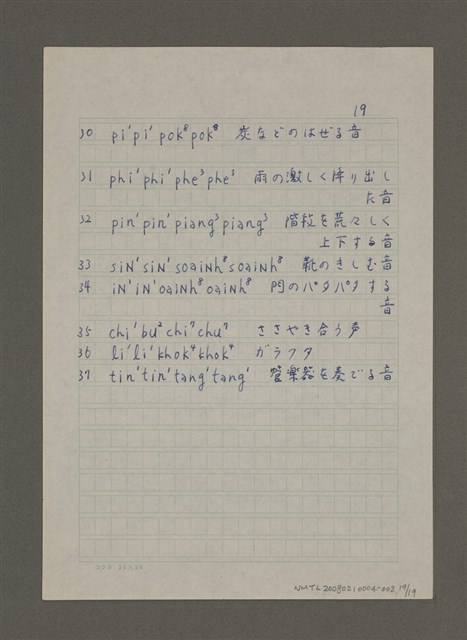 19
30 pi¹ pi¹ pok⁸ pok⁸ 炭などのはぜる音
31 phi¹ phi¹ phe³ phe³ 雨の激しく降り出し
た音
32 pin¹ pin¹ piang³ piang³ 階段を荒々しく
上下する音
33 siN¹ siN¹ soaiNh⁸ soaiNh⁸ 靴のきしむ音
34 iN¹ iN¹ oaiNh⁸ oaiNh⁸ 門のパタパタする
音
35 chi¹ bu² chi⁷ chu⁷ ささやき合う声
36 li¹ li¹ khok⁴ khok⁴ ガラクタ
37 tin¹ tin¹ tang¹ tang¹ 管楽器を奏でる音
コクヨ 20×20
NMTL20080210004-002, 19/19